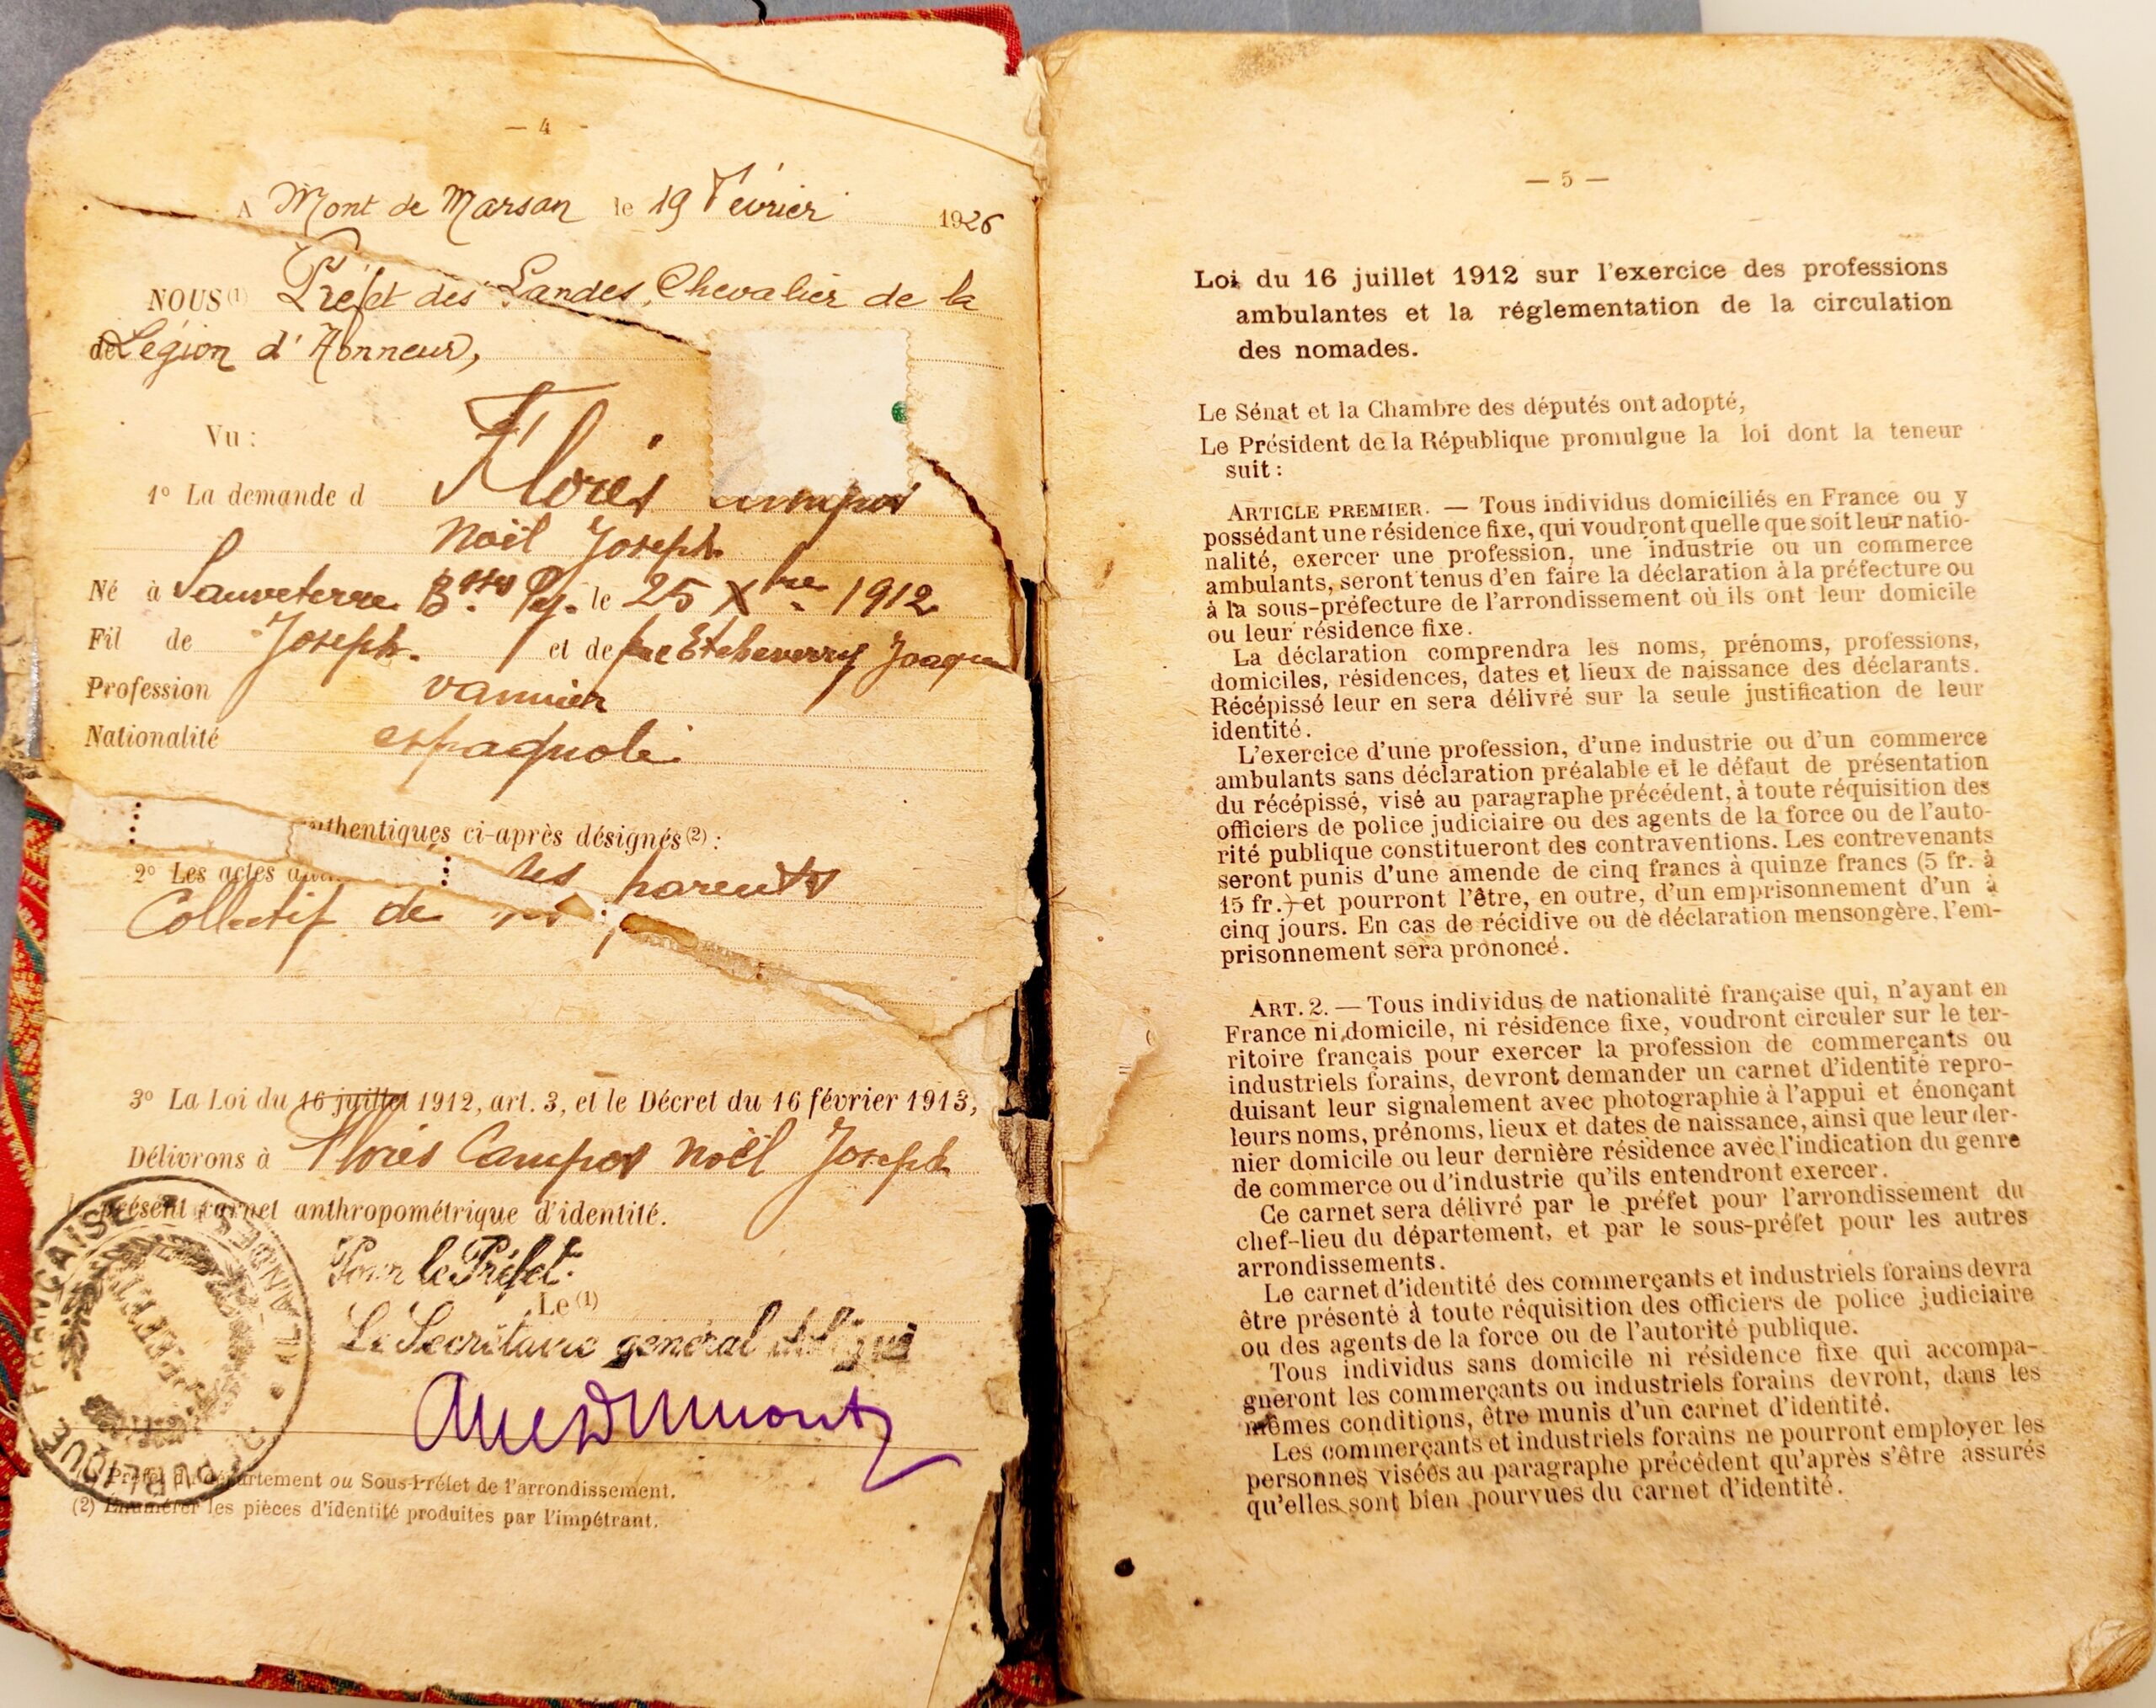 — 4 —
A Mont de Marsan le 19 Février 1926
NOUS (1) Préfet des Landes, Chevalier de la
de Légion d'Honneur,
Vu :
1° La demande d Florès Campos
Noël Joseph
Né à Sauveterre Bsses Py. le 25 Xbre 1912
Fil de Joseph. et de Etcheverry
Profession vannier
Nationalité espagnole
uthentiques ci-après désignés (2) :
2° Les actes au
Collectif de ses parents
3° La Loi du 16 juillet 1912, art. 3, et le Décret du 16 février 1913,
Délivrons à Florès Campos Noël Joseph
présent carnet anthropométrique d'identité.
Pour le Préfet.
Le (1)
Le Secrétaire général délégué
(1) Préfet du département ou Sous-Préfet de l'arrondissement.
(2) Énumérer les pièces d'identité produites par l'impétrant.
— 5 —
Loi du 16 juillet 1912 sur l'exercice des professions
ambulantes et la réglementation de la circulation
des nomades.
Le Sénat et la Chambre des députés ont adopté,
Le Président de la République promulgue la loi dont la teneur
suit :
ARTICLE PREMIER. — Tous individus domiciliés en France ou y
possédant une résidence fixe, qui voudront quelle que soit leur natio-
nalité, exercer une profession, une industrie ou un commerce
ambulants, seront tenus d'en faire la déclaration à la préfecture ou
à la sous-préfecture de l'arrondissement où ils ont leur domicile
ou leur résidence fixe.
La déclaration comprendra les noms, prénoms, professions,
domiciles, résidences, dates et lieux de naissance des déclarants.
Récépissé leur en sera délivré sur la seule justification de leur
identité.
L'exercice d'une profession, d'une industrie ou d'un commerce
ambulants sans déclaration préalable et le défaut de présentation
du récépissé, visé au paragraphe précédent, à toute réquisition des
officiers de police judiciaire ou des agents de la force ou de l'auto-
rité publique constitueront des contraventions. Les contrevenants
seront punis d'une amende de cinq francs à quinze francs (5 fr. à
15 fr.) et pourront l'être, en outre, d'un emprisonnement d'un à
cinq jours. En cas de récidive ou de déclaration mensongère, l'em-
prisonnement sera prononcé.
ART. 2. — Tous individus de nationalité française qui, n'ayant en
France ni domicile, ni résidence fixe, voudront circuler sur le ter-
ritoire français pour exercer la profession de commerçants ou
industriels forains, devront demander un carnet d'identité repro-
duisant leur signalement avec photographie à l'appui et énonçant
leurs noms, prénoms, lieux et dates de naissance, ainsi que leur der-
nier domicile ou leur dernière résidence avec l'indication du genre
de commerce ou d'industrie qu'ils entendront exercer.
Ce carnet sera délivré par le préfet pour l'arrondissement du
chef-lieu du département, et par le sous-préfet pour les autres
arrondissements.
Le carnet d'identité des commerçants et industriels forains devra
être présenté à toute réquisition des officiers de police judiciaire
ou des agents de la force ou de l'autorité publique.
Tous individus sans domicile ni résidence fixe qui accompa-
gneront les commerçants ou industriels forains devront, dans les
mêmes conditions, être munis d'un carnet d'identité.
Les commerçants et industriels forains ne pourront employer les
personnes visées au paragraphe précédent qu'après s'être assurés
qu'elles sont bien pourvues du carnet d'identité.